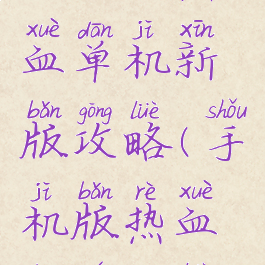 xuè dān jī xīn
血单机新
bǎn gōng lüè shǒu
版攻略(手
jī bǎn rè xuè
机版热血